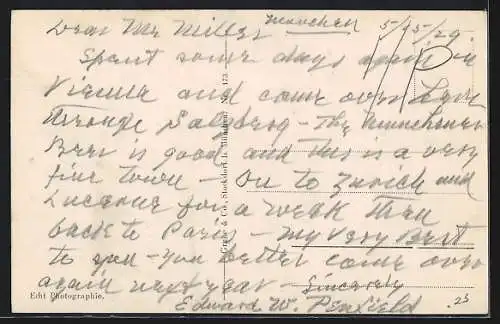 München 5/15/29.
Dear Mr Miller
Spent some days again in
Vienna and come over here
through Salzburg - The Münchener
Beer is good and this is a very
fine town - On to Zurich and
Lucerne for a week then
back to Paris - My Very Best
to you - you better come over
again next year - Sincerely
Edward W. Penfield
Echt Photographie.
.25